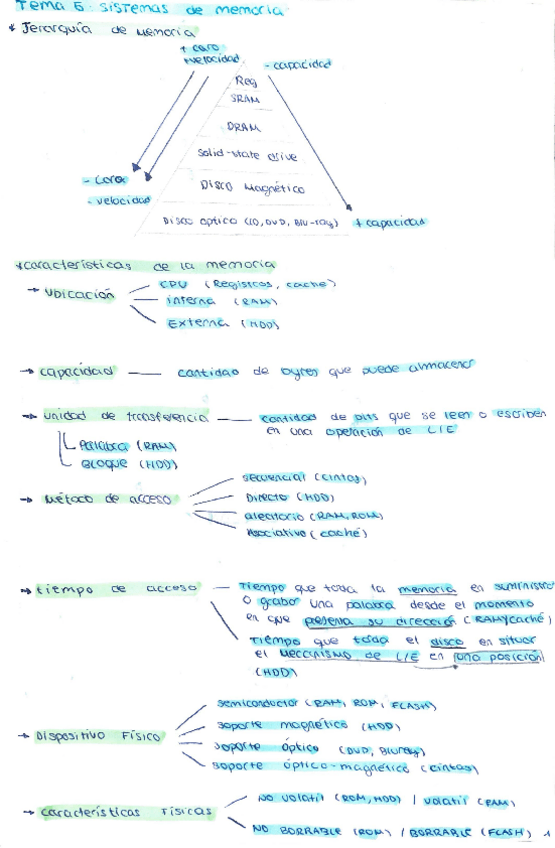 Tema 5: sistemas de memoria
* Jerarquía de memoria
+ caro
+velocidad
- capacidad
Reg
SRAM
DRAM
Solid-state drive
Disco Magnético
Disco óptico (CD, DVD, Blu-ray)
- caro
- velocidad
+ capacidad
*características de la memoria
→ Ubicación
CPU (Registros, caché)
interna (RAM)
Externa (HDD)
→ capacidad — cantidad de bytes que puede almacenar
→ unidad de transferencia — cantidad de bits que se leer o escriben
en una operación de L/E
Palabra (RAM)
Bloque (HDD)
→ Método de acceso
secuencial (cintas)
Directo (HDD)
aleatorio (RAM, ROM)
Asociativo (caché)
→ tiempo de acceso
Tiempo que toda la memoria en suministra
o grabar una palabra desde el momento
en que presenta su dirección (RAM y caché)
Tiempo que toda el disco en situar
el meccinismo de L/E en una posición
(HDD)
→ Dispositivo Físico
semiconductor (RAM, ROM, FLASH)
soporte magnético (HDD)
soporte óptico (DVD, Bluray)
soporte óptico-magnético (cintas)
→ características Físicas
NO volatil (ROM, HDD) / volatil (RAM)
NO BORRABLE (ROM) / BORRABLE (FLASH)